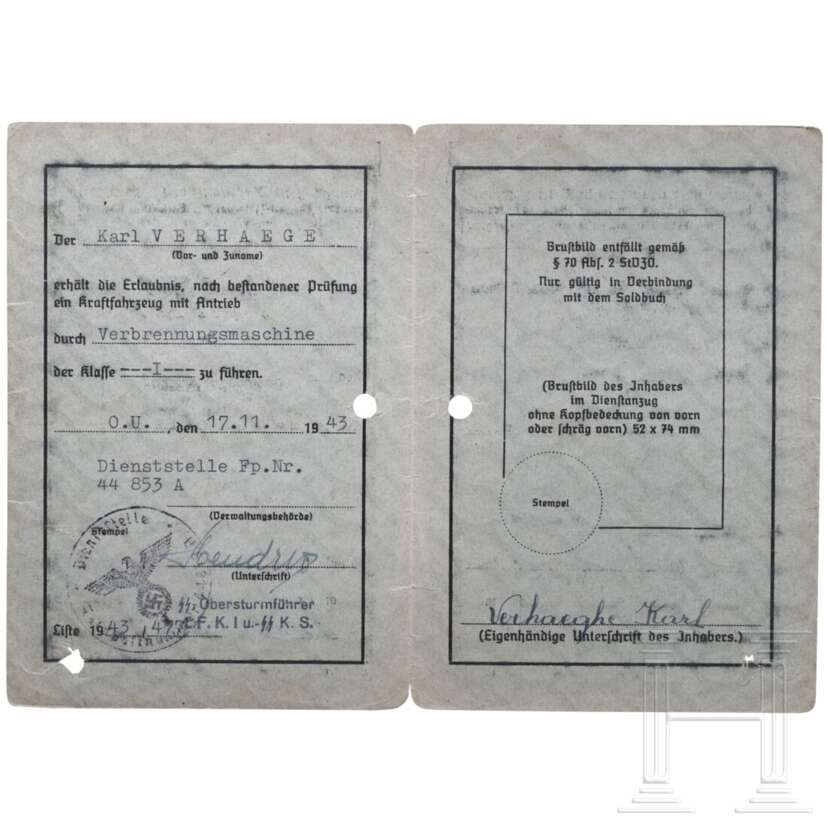 Der Karl VERHAEGE
(Vor- und Zuname)
erhält die Erlaubnis, nach bestandener Prüfung
ein Kraftfahrzeug mit Antrieb
durch Verbrennungsmaschine
der Klasse ---I--- zu führen.
O.U. , den 17.11. 1943
Dienststelle Fp.Nr.
44 853 A
(Verwaltungsbehörde)
Stempel
Dienststelle
(Unterschrift)
ᛋᛋ Obersturmführer
F.K.I u.-ᛋᛋ K.S.
Liste 1943
Brustbild entfällt gemäß
§ 70 Abs. 2 StVZO.
Nur gültig in Verbindung
mit dem Soldbuch
(Brustbild des Inhabers
im Dienstanzug
ohne Kopfbedeckung von vorn
oder schräg vorn) 52 x 74 mm
Stempel
Verhaeghe Karl
(Eigenhändige Unterschrift des Inhabers.)